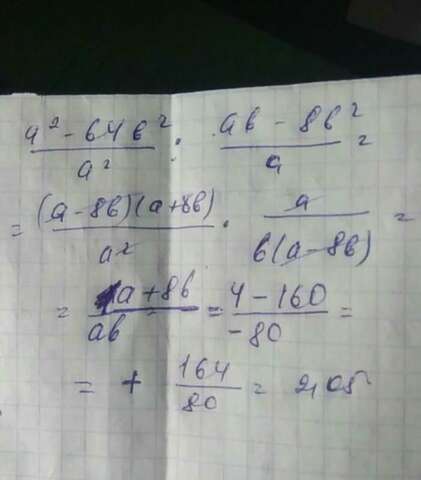 a² - 64b² / a² : ab - 8b² / a =
= (a - 8b)(a + 8b) / a² · a / b(a - 8b) =
= a + 8b / ab = 4 - 160 / -80 =
= + 164 / 80 = 2,05